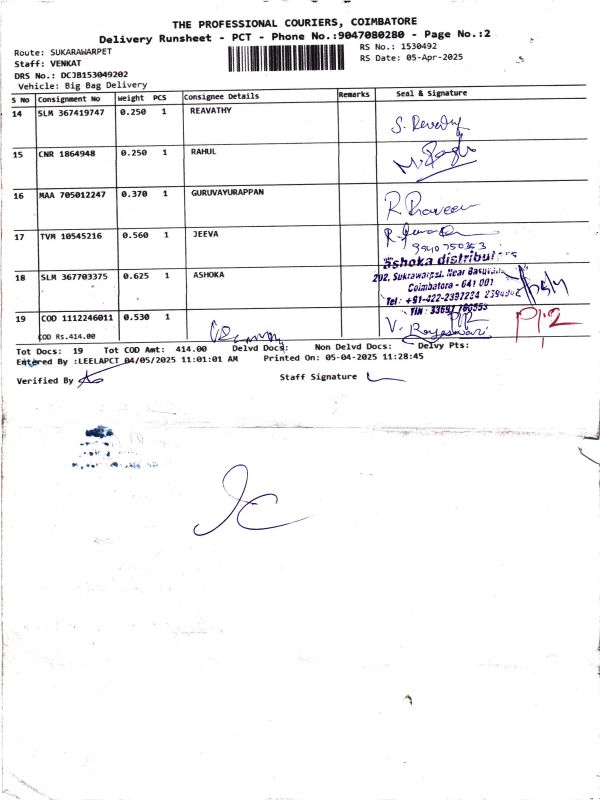 THE PROFESSIONAL COURIERS, COIMBATORE
Delivery Runsheet - PCT - Phone No.:9047080280 - Page No.:2
Route: SUKARAWARPET
RS No.: 1530492
Staff: VENKAT
RS Date: 05-Apr-2025
DRS No.: DCJB153049202
Vehicle: Big Bag Delivery
S No Consignment No Weight PCS Consignee Details Remarks Seal & Signature
14 SLM 367419747 0.250 1 REAVATHY
S. Revathy
15 CNR 1864948 0.250 1 RAHUL
16 MAA 705012247 0.370 1 GURUVAYURAPPAN
R. Praveen
17 TVM 10545216 0.560 1 JEEVA
ashoka distributors
202, Sukrawarpet, Near
Coimbatore - 641 001
18 SLM 367703375 0.625 1 ASHOKA
Tel : +91-422-2397224
TIN :
19 COD 1112246011 0.530 1
V. Rajeswari
COD Rs.414.00
Tot Docs: 19 Tot COD Amt: 414.00 Delvd Docs: Non Delvd Docs: Delvy Pts:
Entered By :LEELAPCT 04/05/2025 11:01:01 AM Printed On: 05-04-2025 11:28:45
Verified By
Staff Signature